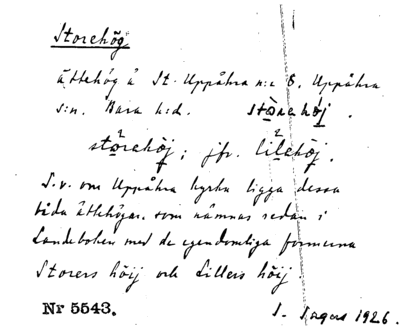 Storehög
ättehög å St. Uppåkra n:r 8, Uppåkra
s:n. Bara h:d. störehöj.
störehöj; jfr. lilehöj.
S.v. om Uppåkra kyrka ligga dessa
båda ättehögar, som nämnas redan i
Landeboken med de egendomliga formerna
Storers höij och Lillers höij.
Nr 5543.
1926.